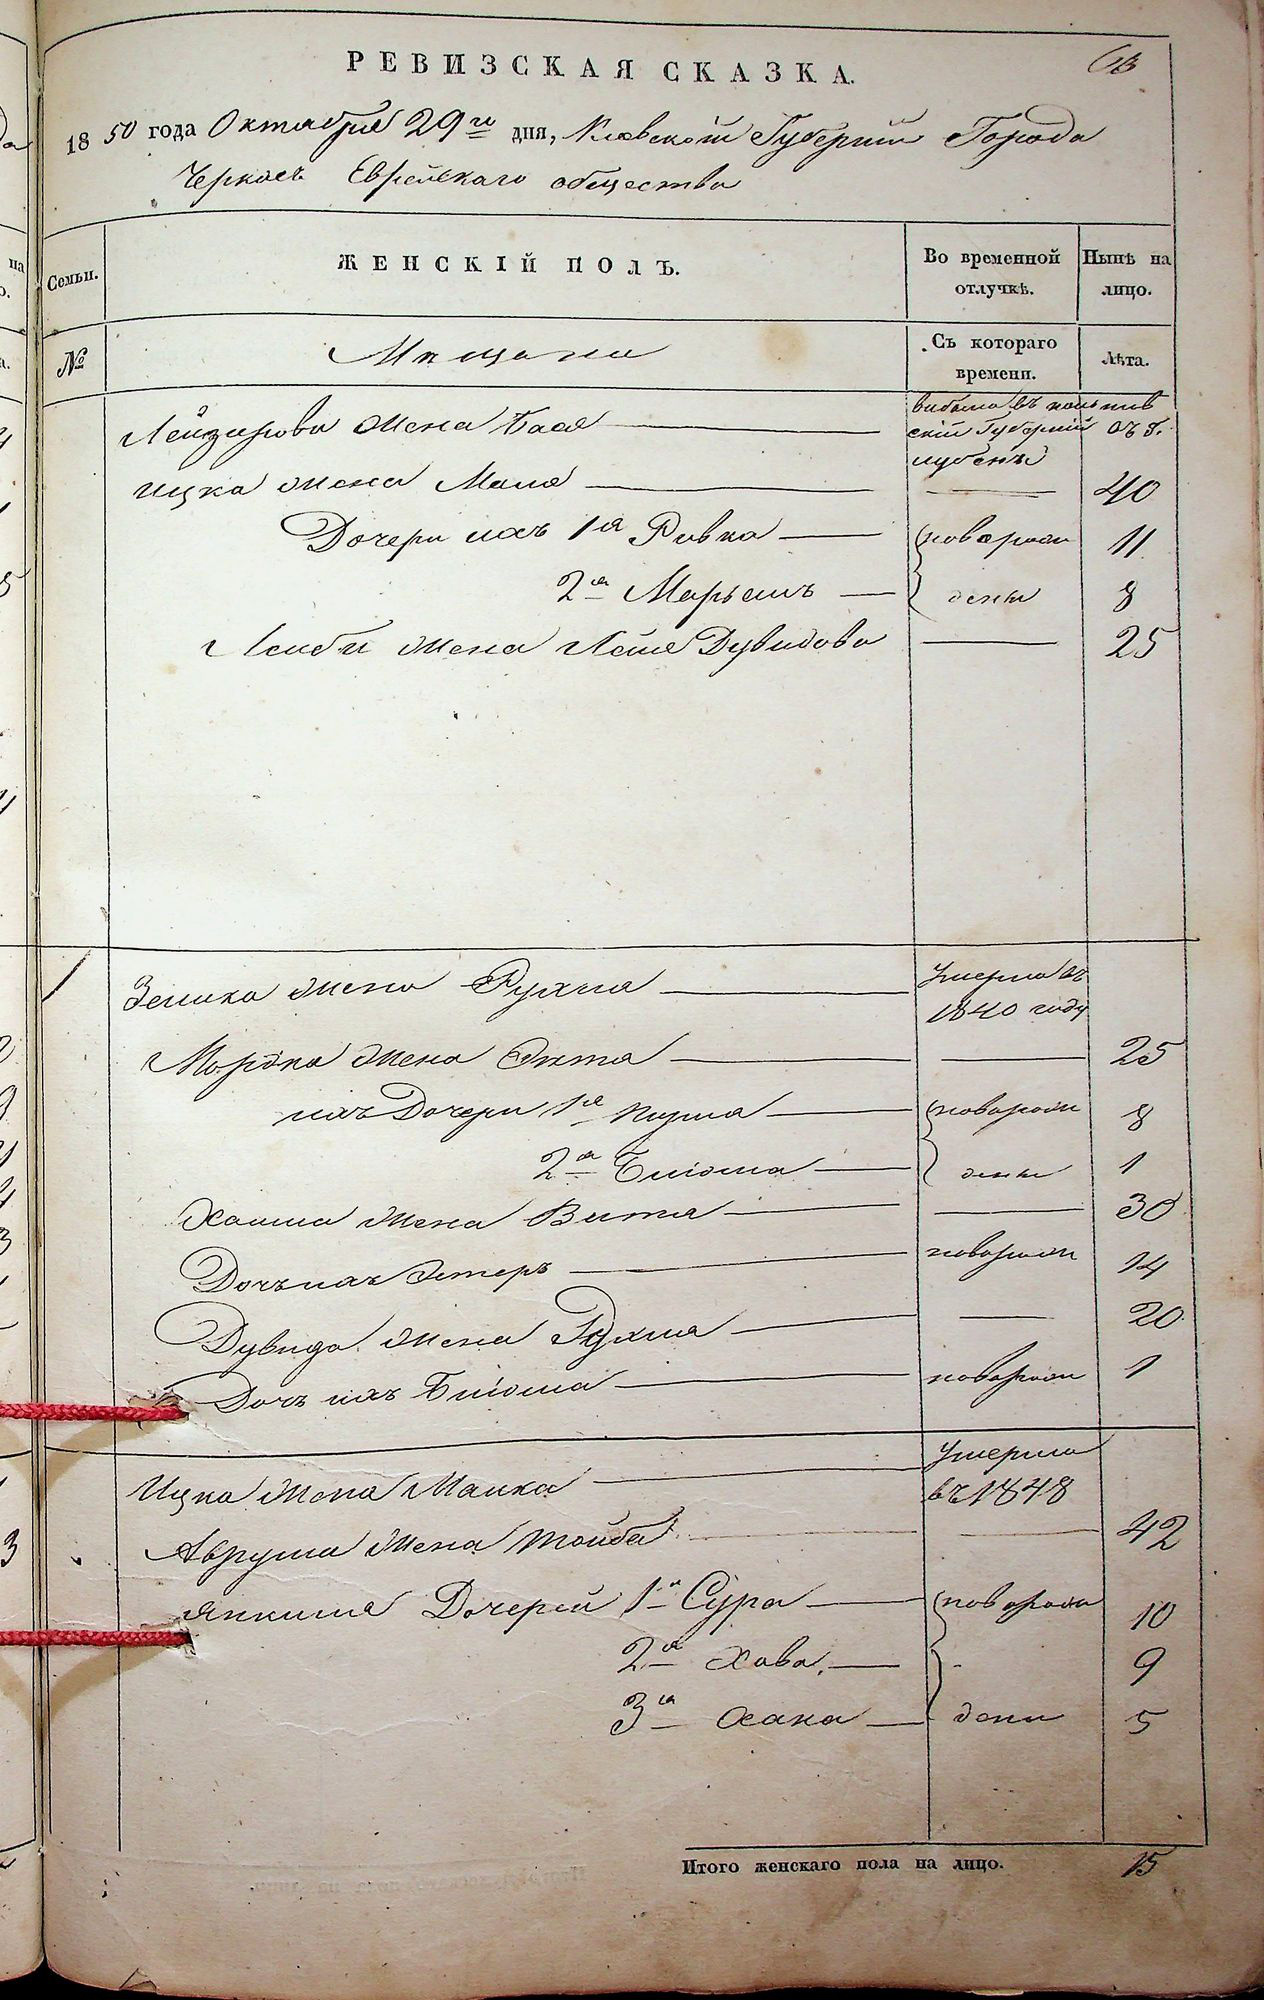 РЕВИЗСКАЯ СКАЗКА.
1850 года Октября 29го дня, Киевской Губернии Города
Черкасъ Еврейскаго общества
Семьи.
ЖЕНСКІЙ ПОЛЪ.
Во временной отлучкѣ.
Нынѣ на лицо.
№
Мѣщане
Съ котораго времени.
Лѣта.
Лейзерова жена Бася
Губерній
Ицка жена Маля — 40
Дочери ихъ 1я Ривка — новорож 11
2я Марьемъ — дены 8
Лейби жена Лея Дувидова — 25
Зелика жена Рухля — Умерла въ
1840 году
Мордка жена Энтя — 25
ихъ Дочери 1я — новорож 8
2я — дены 1
Хаима жена Витя — 30
Дочь ихъ Эстеръ — новорож 14
Дувида жена Рухля — 20
Дочь ихъ — новорож 1
Ицка жена Малка — Умерла
въ 1848
Аврума жена Тойба — 42
Янкиля Дочерей 1я Сура — новорож 10
2я Хава. — 9
3я Хака — дены 5
Итого женскаго пола на лицо. 15